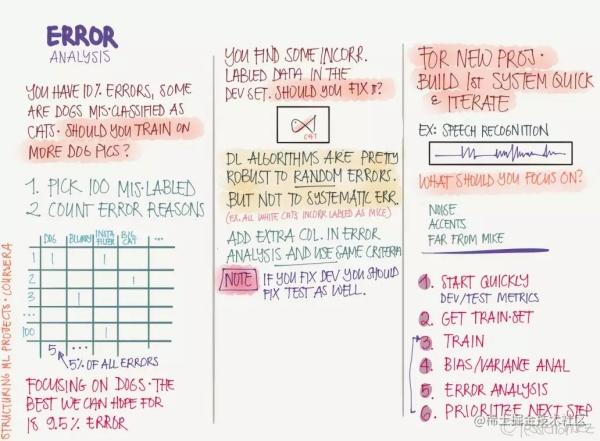 ERROR
ANALYSIS
YOU HAVE 10% ERRORS, SOME
ARE DOGS MIS-CLASSIFIED AS
CATS. SHOULD YOU TRAIN ON
MORE DOG PICS?
1. PICK 100 MIS-LABLED
2 COUNT ERROR REASONS
DOG BLURRY INSTA FILTER BIG CAT ...
1 1 1
2 1
3 1
...
100 1
5 ...
5% OF ALL ERRORS
FOCUSING ON DOGS. THE
BEST WE CAN HOPE FOR
IS 9.5% ERROR
STRUCTURING ML PROJECTS · COURSERA
YOU FIND SOME INCORR.
LABLED DATA IN THE
DEV SET. SHOULD YOU FIX IT?
CAT
DL ALGORITHMS ARE PRETTY
ROBUST TO RANDOM ERRORS.
BUT NOT TO SYSTEMATIC ERR.
(EX. ALL WHITE CATS INCORR LABLED AS MICE)
ADD EXTRA COL. IN ERROR
ANALYSIS AND USE SAME CRITERIA
NOTE IF YOU FIX DEV YOU SHOULD
FIX TEST AS WELL.
FOR NEW PROJ.
BUILD 1st SYSTEM QUICK
& ITERATE
EX: SPEECH RECOGNITION
WHAT SHOULD YOU FOCUS ON?
NOISE
ACCENTS
FAR FROM MIKE
1. START QUICKLY
DEV/TEST METRICS
2. GET TRAIN-SET
3. TRAIN
4. BIAS/VARIANCE ANAL
5. ERROR ANALYSIS
6. PRIORITIZE NEXT STEP
@稀土掘金技术社区